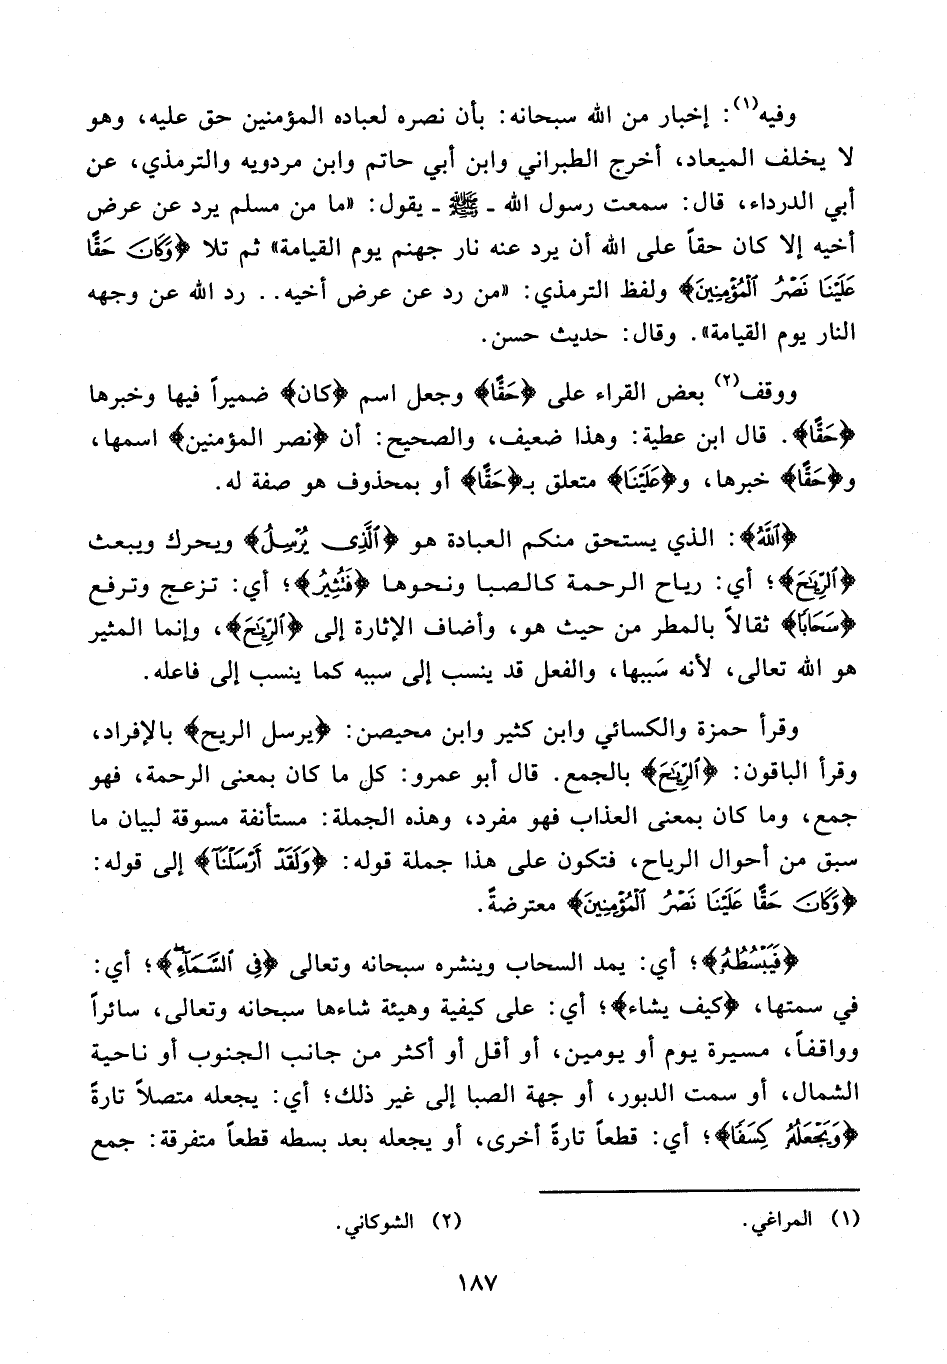 وفيه(١): إخبار من الله سبحانه: بأن نصره لعباده المؤمنين حق عليه، وهو
لا يخلف الميعاد، أخرج الطبراني وابن أبي حاتم وابن مردويه والترمذي، عن
أبي الدرداء، قال: سمعت رسول الله ـ ﷺ ـ يقول: «ما من مسلم يرد عن عرض
أخيه إلا كان حقاً على الله أن يرد عنه نار جهنم يوم القيامة» ثم تلا ﴿وَكَانَ حَقًّا
عَلَيْنَا نَصْرُ ٱلْمُؤْمِنِينَ﴾ ولفظ الترمذي: «من رد عن عرض أخيه.. رد الله عن وجهه
النار يوم القيامة». وقال: حديث حسن.
ووقف(٢) بعض القراء على ﴿حَقًّا﴾ وجعل اسم ﴿كان﴾ ضميراً فيها وخبرها
﴿حَقًّا﴾. قال ابن عطية: وهذا ضعيف، والصحيح: أن ﴿نصر المؤمنين﴾ اسمها،
و﴿حَقًّا﴾ خبرها، و﴿عَلَيْنَا﴾ متعلق بـ﴿حَقًّا﴾ أو بمحذوف هو صفة له.
﴿ٱللَّهُ﴾: الذي يستحق منكم العبادة هو ﴿ٱلَّذِى يُرْسِلُ﴾ ويحرك ويبعث
﴿ٱلرِّيَٰحَ﴾؛ أي: رياح الرحمة كالصبا ونحوها ﴿فَتُثِيرُ﴾؛ أي: تزعج وترفع
﴿سَحَابًا﴾ ثقالاً بالمطر من حيث هو، وأضاف الإثارة إلى ﴿ٱلرِّيَٰحَ﴾، وإنما المثير
هو الله تعالى، لأنه سَببها، والفعل قد ينسب إلى سببه كما ينسب إلى فاعله.
وقرأ حمزة والكسائي وابن كثير وابن محيصن: ﴿يرسل الريح﴾ بالإفراد،
وقرأ الباقون: ﴿ٱلرِّيَٰحَ﴾ بالجمع. قال أبو عمرو: كل ما كان بمعنى الرحمة، فهو
جمع، وما كان بمعنى العذاب فهو مفرد، وهذه الجملة: مستأنفة مسوقة لبيان ما
سبق من أحوال الرياح، فتكون على هذا جملة قوله: ﴿وَلَقَدْ أَرْسَلْنَا﴾ إلى قوله:
﴿وَكَانَ حَقًّا عَلَيْنَا نَصْرُ ٱلْمُؤْمِنِينَ﴾ معترضةً.
﴿فَيَبْسُطُهُۥ﴾؛ أي: يمد السحاب وينشره سبحانه وتعالى ﴿فِى ٱلسَّمَآءِ﴾؛ أي:
في سمتها، ﴿كيف يشاء﴾؛ أي: على كيفية وهيئة شاءها سبحانه وتعالى، سائراً
وواقفاً، مسيرة يوم أو يومين، أو أقل أو أكثر من جانب الجنوب أو ناحية
الشمال، أو سمت الدبور، أو جهة الصبا إلى غير ذلك؛ أي: يجعله متصلاً تارةً
﴿وَيَجْعَلُهُۥ كِسَفًا﴾؛ أي: قطعاً تارةً أخرى، أو يجعله بعد بسطه قطعاً متفرقة: جمع
(١) المراغي. (٢) الشوكاني.
١٨٧